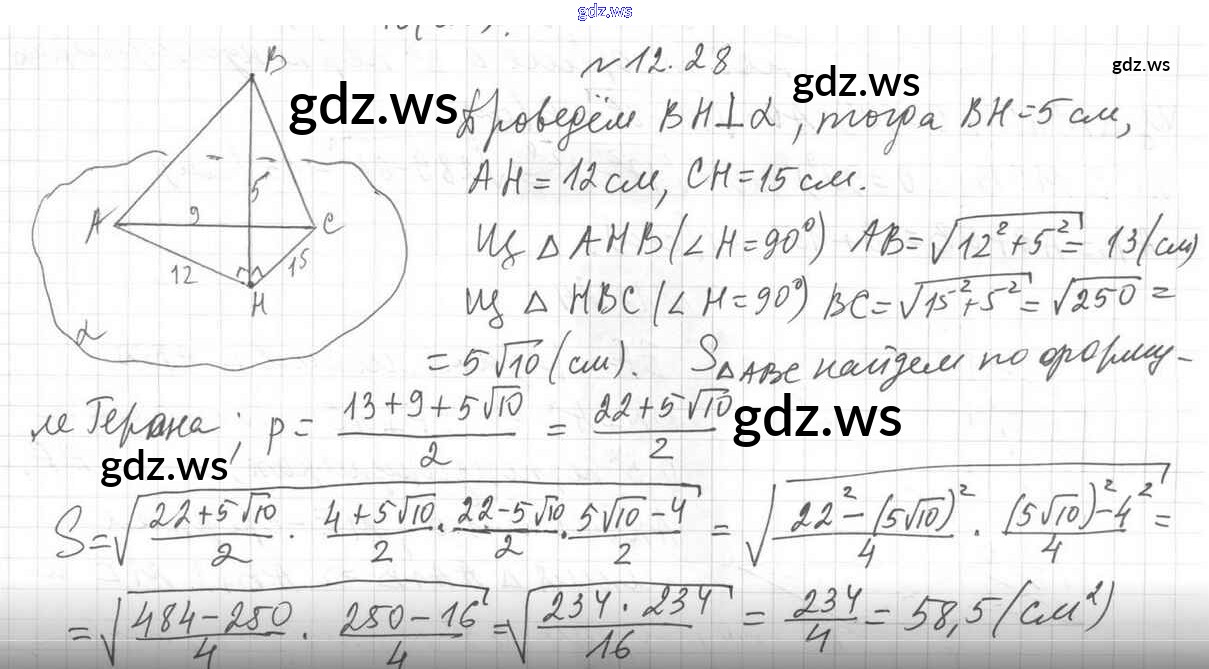 gdz.ws
№ 12.28
gdz.ws
gdz.ws
gdz.ws
Проведём BH⊥α, тогда BH=5 см,
AH=12 см, CH=15 см.
Из △AHB (∠H=90°) AB=√(12²+5²)= 13(см)
Из △HBC (∠H=90°) BC=√(15²+5²)=√250=
=5√10 (см). S△ABC найдем по форму-
ле Герона; p=(13+9+5√10)/2=(22+5√10)/2
gdz.ws
gdz.ws
S=√((22+5√10)/2·(4+5√10)/2·(22-5√10)/2·(5√10-4)/2)=√((22²-(5√10)²)/4·((5√10)²-4²)/4)=
=√((484-250)/4·(250-16)/4)=√((234·234)/16)=234/4=58,5(см²)
B
A
9
5
C
12
15
H
α